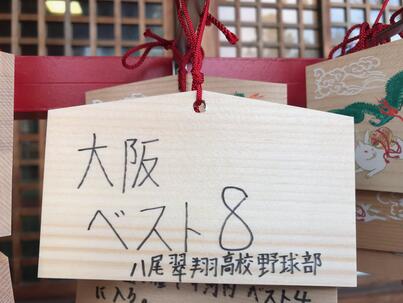 大阪
ベスト8
八尾翠翔高校野球部
ベスト4
に入る。